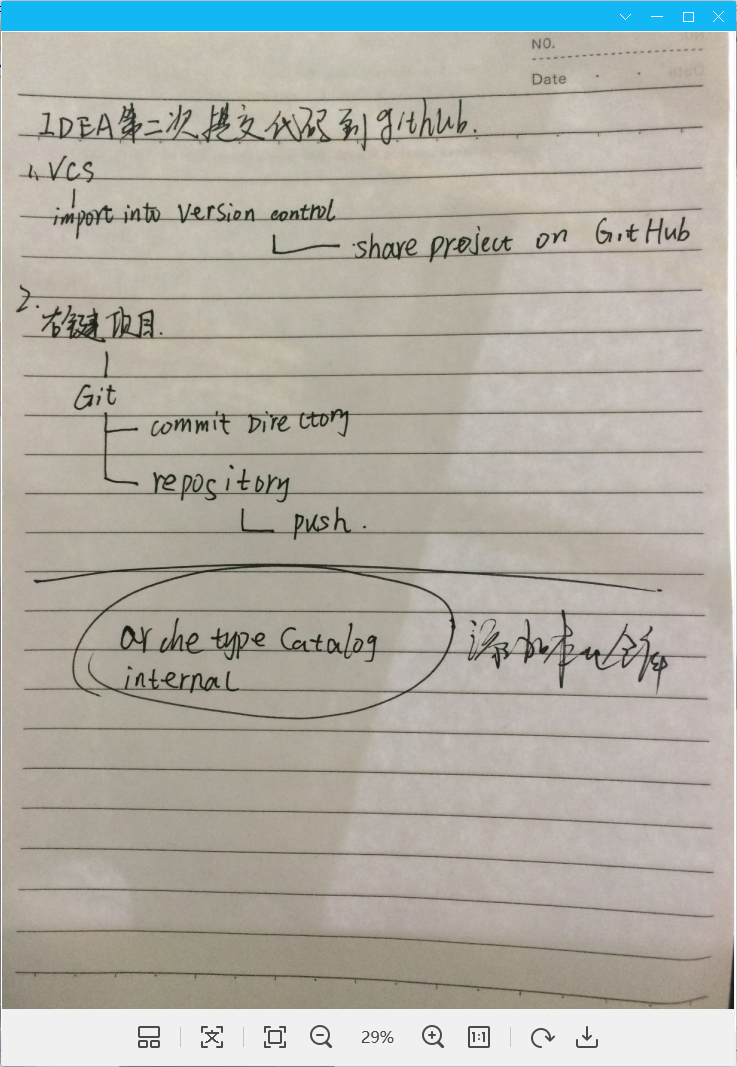 NO.
Date
IDEA第二次提交代码到github.
1、VCS
import into Version control
share project on GitHub
2.
右键项目.
Git
commit Directory
repository
push.
archetype Catalog
internal
添加本地
29%
1:1